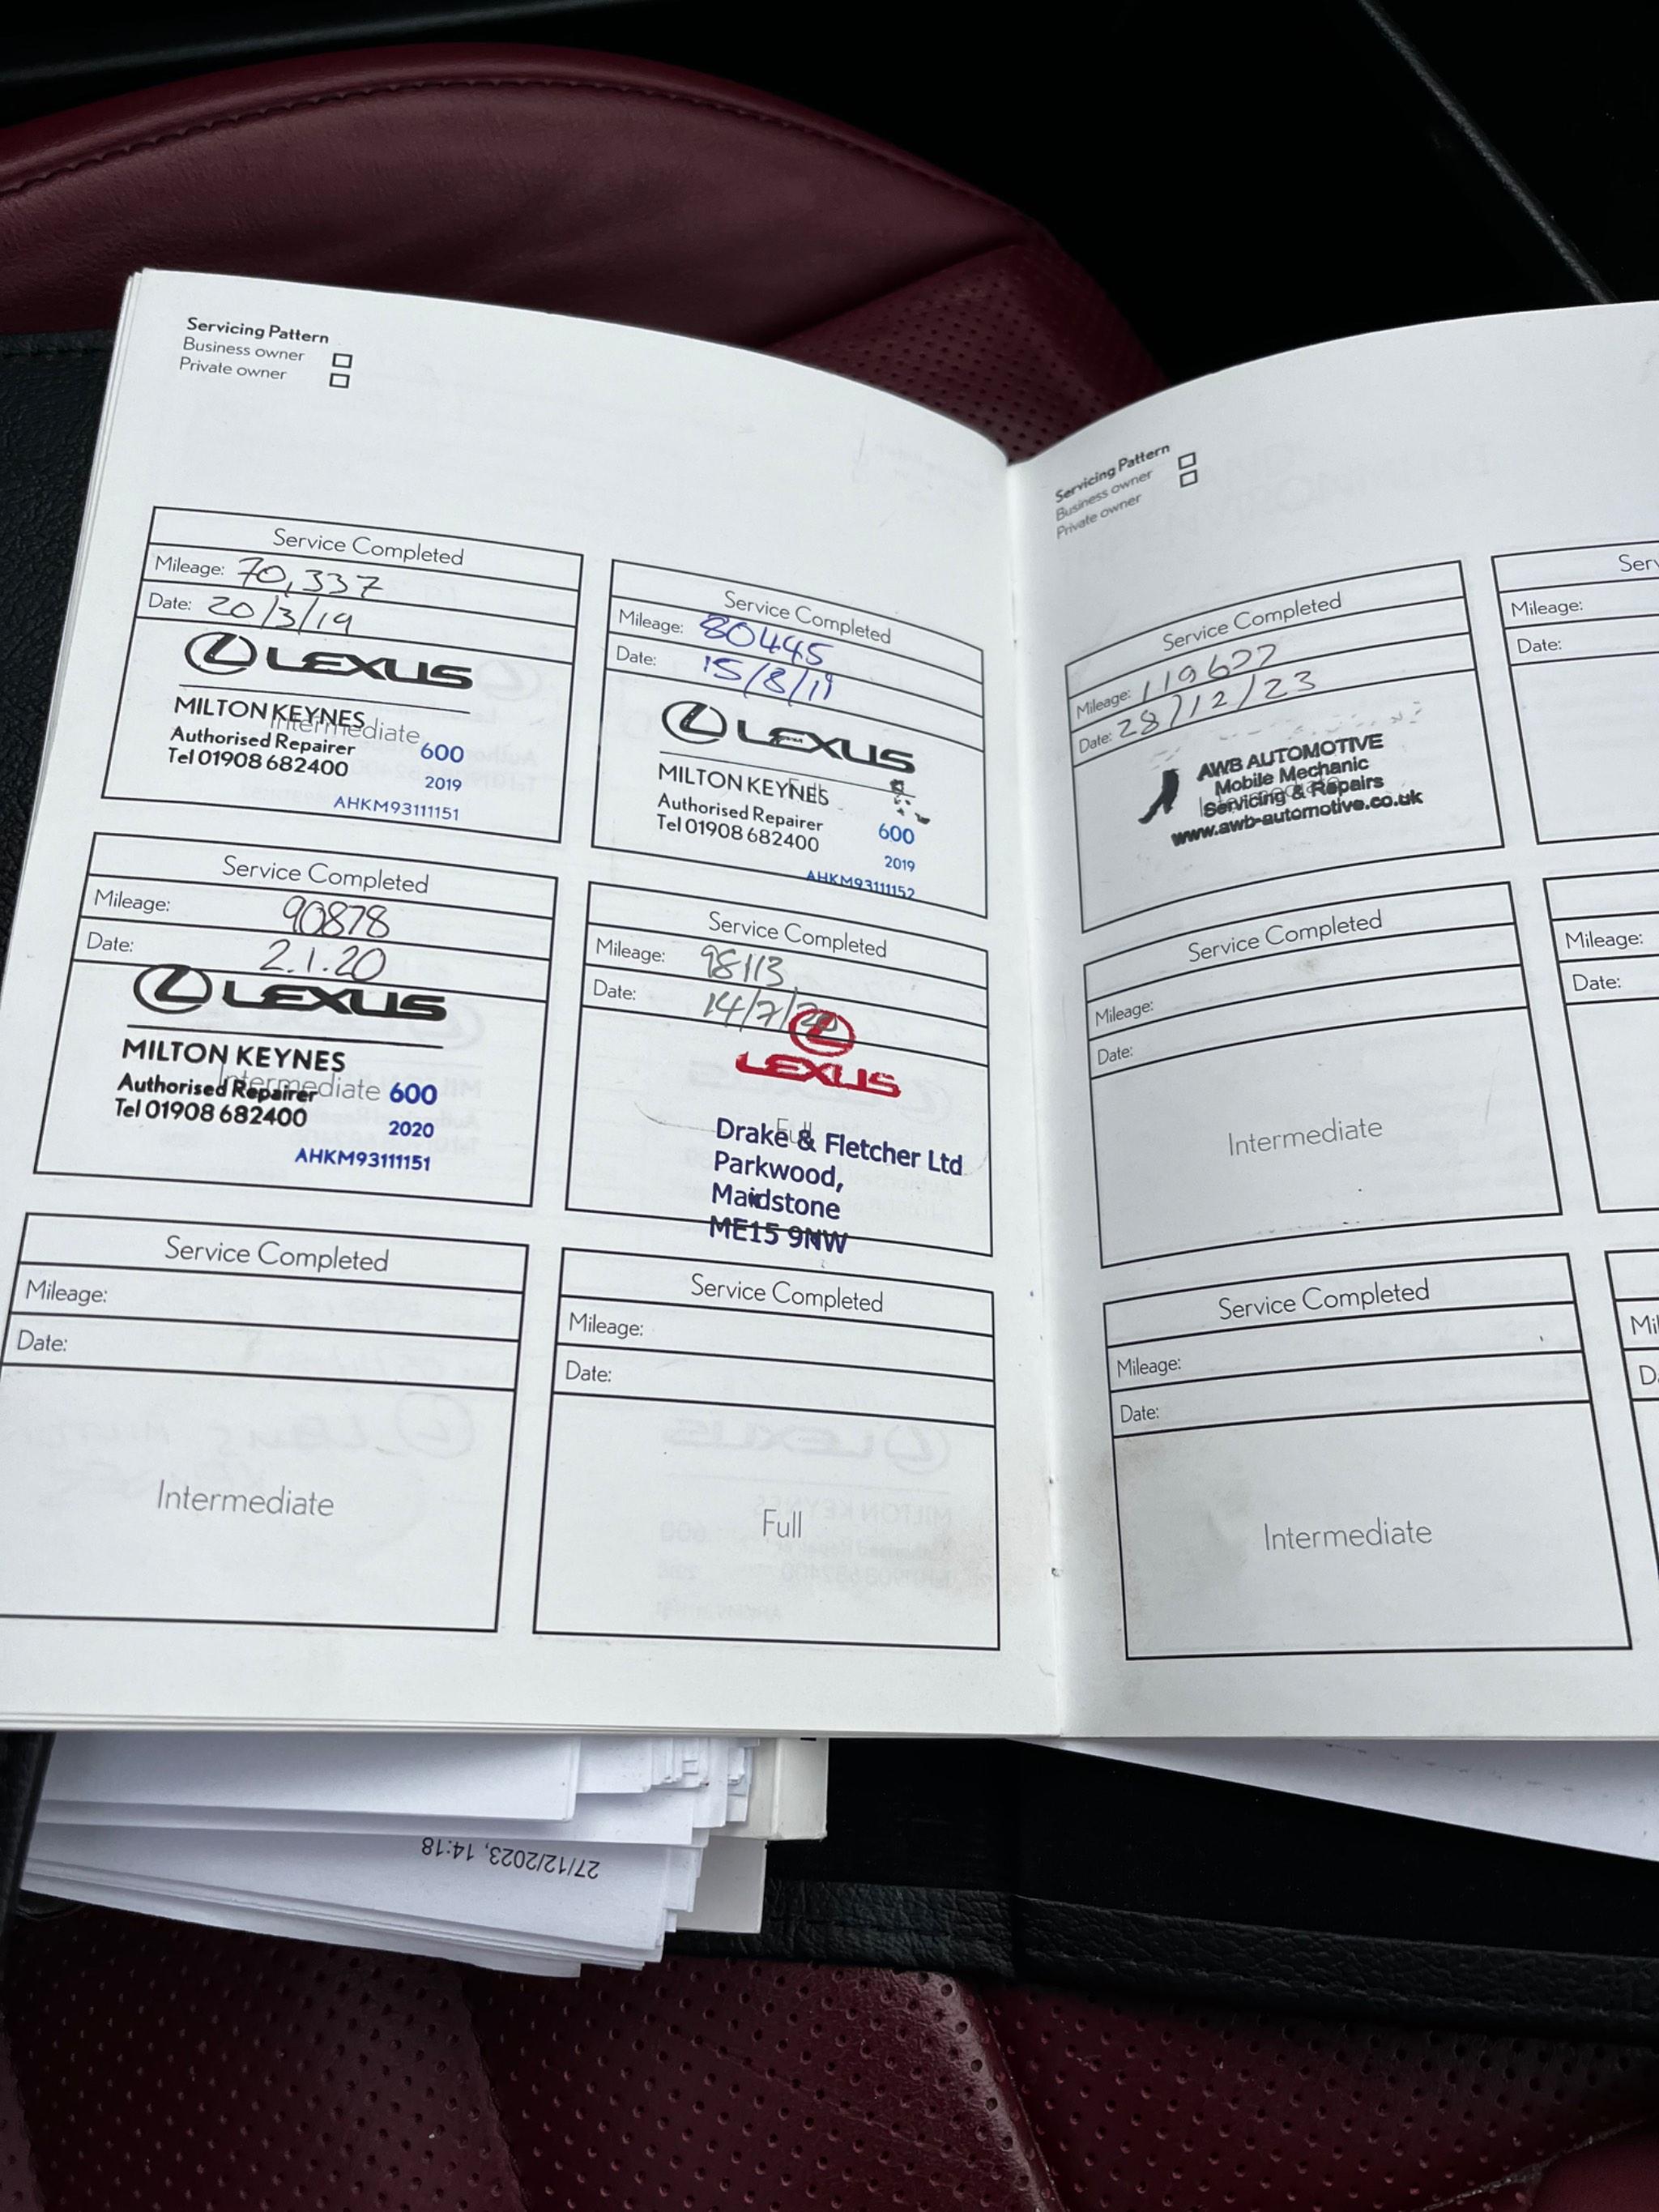 Servicing Pattern
Business owner
Private owner
Service Completed
Mileage: 70,337
Date: 20/3/19
LEXUS
MILTON KEYNES
Intermediate
Authorised Repairer 600
Tel 01908 682400
2019
AHKM93111151
Service Completed
Mileage: 80445
Date: 15/8/19
LEXUS
MILTON KEYNES
Authorised Repairer
Tel 01908 682400
600
2019
AHKM93111152
Service Completed
Mileage: 90878
Date: 2.1.20
LEXUS
MILTON KEYNES
Intermediate
Authorised Repairer 600
Tel 01908 682400
2020
AHKM93111151
Service Completed
Mileage: 98113
Date: 14/7/20
LEXUS
Full
Drake & Fletcher Ltd
Parkwood,
Maidstone
ME15 9NW
Service Completed
Mileage:
Date:
Intermediate
Service Completed
Mileage:
Date:
Full
Servicing Pattern
Business owner
Private owner
Service Completed
Mileage: 119627
Date: 28/12/23
AWB AUTOMOTIVE
Mobile Mechanic
Servicing & Repairs
www.awb-automotive.co.uk
Service Completed
Mileage:
Date:
Intermediate
Service Completed
Mileage:
Date:
Intermediate
Mileage:
Date:
Mileage:
Date:
27/12/2023, 14:18